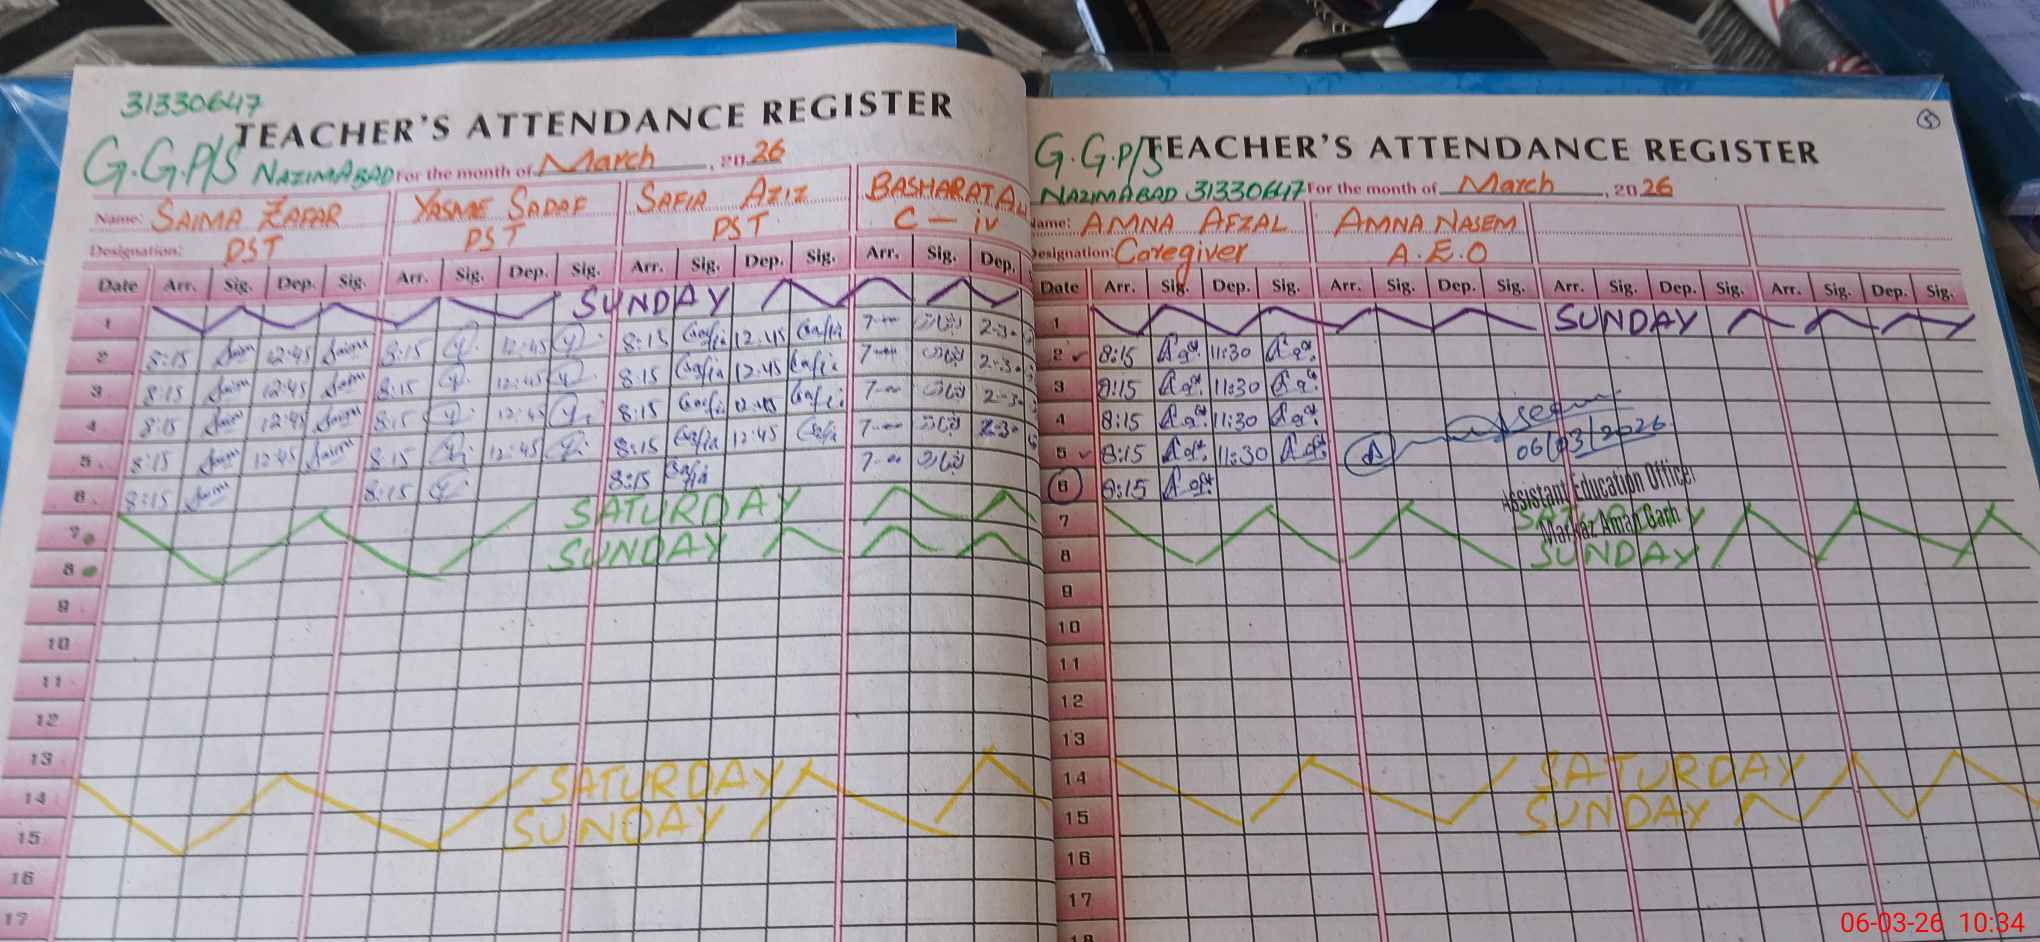 31330647
TEACHER'S ATTENDANCE REGISTER
G.G.P/S NAZIMABAD For the month of March, 2026
Name: SAIMA ZAFAR YASME SADAF SAFIA AZIZ BASHARAT AL
Designation: PST PST PST C - iv
Date Arr. Sig. Dep. Sig. Arr. Sig. Dep. Sig. Arr. Sig. Dep. Sig. Arr. Sig. Dep.
1 SUNDAY
2 8:15 Saim 12:45 Saima 8:15 Y. 12:45 Y. 8:15 Safia 12:45 Safia 7-00 2-30
3 8:15 Saim 12:45 Saim 8:15 Y. 12:45 Y. 8:15 Safia 12:45 Safia 7-00 2-30
4 8:15 Saim 12:45 Saim 8:15 Y. 12:45 Y. 8:15 Safia 12:45 Safia 7-00 2-30
5 8:15 Saim 12:45 Saim 8:15 Y. 12:45 Y. 8:15 Safia 12:45 Safia 7-00 2-30
6 8:15 Saim 8:15 Y. 8:15 Safia 7-00
7 SATURDAY
8 SUNDAY
9
10
11
12
13
14 SATURDAY
15 SUNDAY
16
17
5
TEACHER'S ATTENDANCE REGISTER
G.G.P/S
NAZIMABAD 31330647 For the month of March, 2026
Name: AMNA AFZAL AMNA NASEM
Designation: Caregiver A.E.O
Date Arr. Sig. Dep. Sig. Arr. Sig. Dep. Sig. Arr. Sig. Dep. Sig. Arr. Sig. Dep. Sig.
1 SUNDAY
2 8:15 11:30
3 8:15 11:30
4 8:15 11:30
5 8:15 11:30
06/03/2026
6 8:15
Assistant Education Officer
Markaz Aman Garh
7 SATURDAY
8 SUNDAY
9
10
11
12
13
14 SATURDAY
15 SUNDAY
16
17
18
06-03-26 10:34